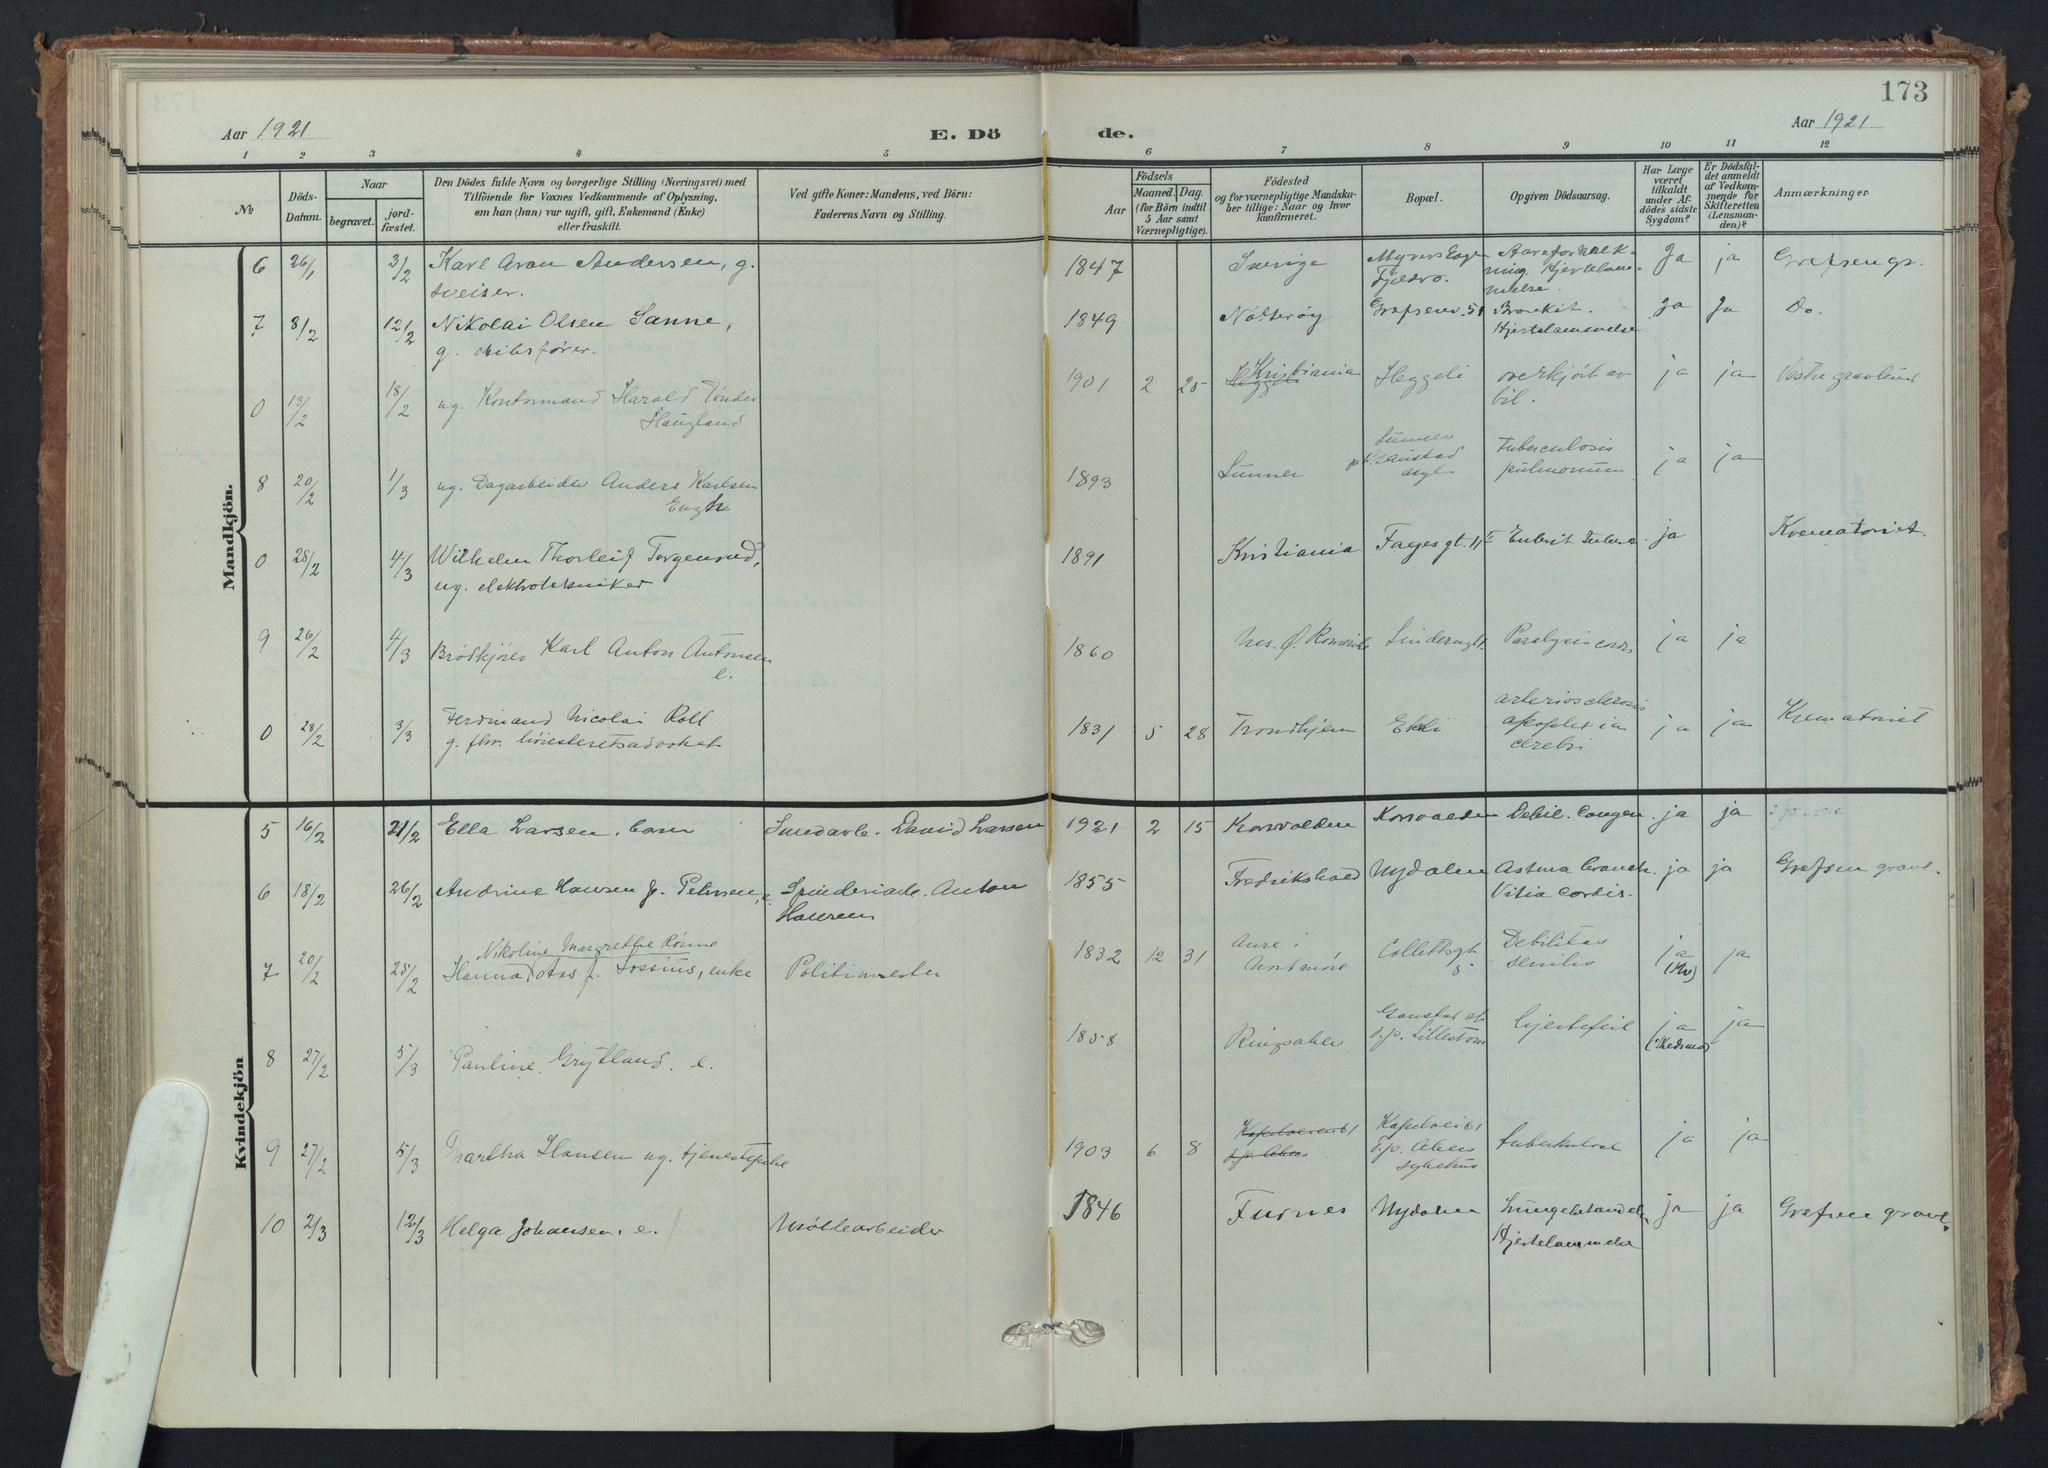 173
Aar 1921
E. Dö
de.
Aar 1921
1 2 3 4 5 6 7 8 9 10 11 12
№
Döds-
Datum.
Naar
begravet.
jord-
fæstet.
Den Dödes fulde Navn og borgerlige Stilling (Næringsvei) med
Tilföiende for Voxnes Vedkommende af Oplysning,
om han (hun) var ugift, gift, Enkemand (Enke)
eller fraskilt.
Ved gifte Koner: Mandens, ved Börn:
Faderens Navn og Stilling.
Födsels
Aar
Maaned. Dag.
(for Börn indtil
5 Aar samt
Værnepligtige).
Födested
og for værnepligtige Mandska-
ber tillige: Naar og hvor
konfirmeret.
Bopæl.
Opgiven Dödsaarsag.
Har Læge
været
tilkaldt
under Af-
dödes sidste
Sygdom?
Er Dödsfal-
det anmeldt
af Vedkom-
mende for
Skifteretten
(Lensman-
den)?
Anmærkninger
Mandkjön.
6 26/1 3/2 Karl Aron Andersen, g. 1847 Sverige Aareforkalk- Ja ja Grefsen gr.
sveiser. ning, Hjertelam-
melse.
7 8/2 12/2 Nikolai Olsen Sanne, 1849 Nøtterøy Grefsenv. 51 Bronkit. Ja Ja Do.
g. skibsfører. Hjertelammelse
0 13/2 18/2 ug. Kontormand Harald Tønder 1901 2 25 Kristiania Heggeli overkjört av ja ja Vestre gravlund
Haugland bil.
8 20/2 1/3 ug. Dagarbeider Anders Karlsen 1893 Lunner Lunner Tuberculosis ja ja
Engh Gaustad asyl pulmonum
0 28/2 4/3 Wilhelm Thorleif Torgersrud, 1891 Kristiania Fagesgt. 11 ja Krematoriet.
ug. elektrotekniker
9 26/2 4/3 Brödkjörer Karl Anton Antonsen 1860 Nes. Ø. Romerike Paralysis cordis ja ja
e.
0 28/2 3/3 Ferdinand Nicolai Roll 1831 5 28 Trondhjem arteriosclerosis ja ja Krematoriet
g. fhv. höiesteretsadvokat apoplexia
cerebri
Kvindekjön
5 16/2 21/2 Ella Larsen, barn Smedarb. David Larsen 1921 2 15 Korsvolden Korsvolden Debil. Congen. ja ja
6 18/2 26/2 Andrine Hansen f. Petersen, e. Spinderiarb. Anton 1855 Fredrikshald Nydalen Astma bronch. ja ja Grefsen grav.
Hansen Vitia cordis.
Nikoline Margrethe Rönne
7 20/2 25/2 Hanna Aas f. Lossius, enke Politimester 1832 12 31 Aure i Collettsgt. Debilitas ja ja
Nordmöre senilis
8 27/2 5/3 Pauline Grytland. e. 1858 Ringsaker Gaustad hjertefeil ja ja
o.p. Lilleström (Skedsmo)
9 27/2 5/3 Martha Hansen ug. tjenestepike 1903 6 8 o.p. Akers tuberkulose ja ja
sykehus
10 2/3 12/3 Helga Johansen. e. Möllearbeider 1846 Furnes Nydalen Lungebetændelse ja ja Grefsen grav.
Hjertelammelse